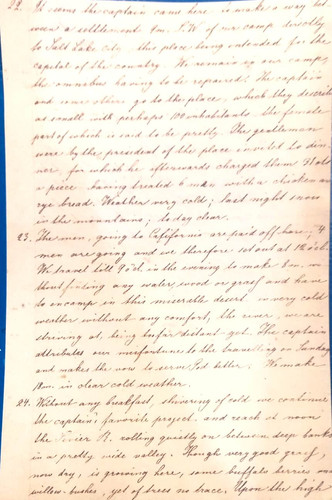 22. It seems the captain came here to make a way bet
ween a settlement 4m. S.W. of our camp directly
to Salt Lake city, this place being intended for the
capital of the country. We remain in our camp,
the omnibus having to be repaired. The captain
and some others go to the place, which they describe
as small with perhaps 100 inhabitants, the female
part of which is said to be pretty. The gentlemen
were by the president of the place invited to din-
ner, for which he afterwards charged them
a piece having treated 6 men with a chicken and
rye bread. Weather very cold; last night snow
in the mountains; to day clear.
23. The men, going to California are paid off here; 4
men are going and we therefore set out at 12 o'cl.
We travel till 9 o'cl in the evening to make 8 m. wi-
thout finding any water, wood or grass and have
to encamp in this miserable desert in very cold
weather without any comfort, the river, we are
striving at, being by far distant yet. The captain
attributes our misfortune to the travelling on Sunday
and makes the vow to serve God better. We make
in clear cold weather.
24. Without any breakfast, shivering of cold we continue
the captain's favorite project and reach at noon
the Sevier R. rolling quietly on between deep banks
in a pretty wide valley. Though very good grass,
now dry, is growing here, some buffalo berries and
willow-bushes, yet of trees no trace. Upon the high